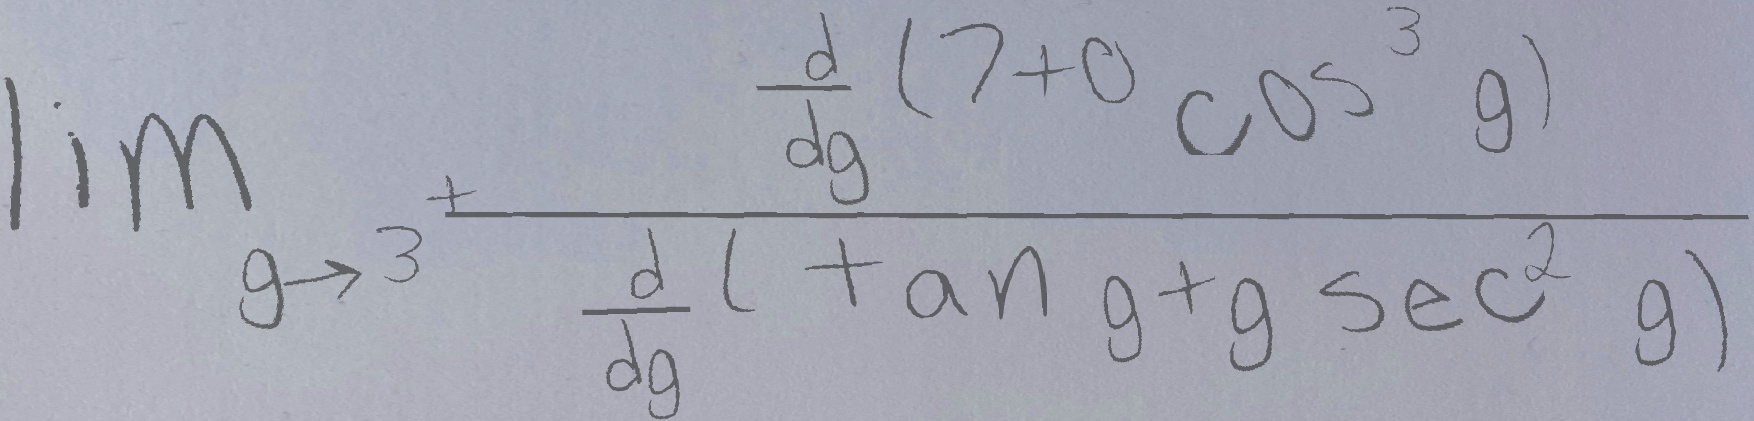 \lim_{g \to 3^{+}} \frac{\frac{d}{dg}(7+0\cos^{3}g)}{\frac{d}{dg}(\tan g+g\sec^{2}g)}